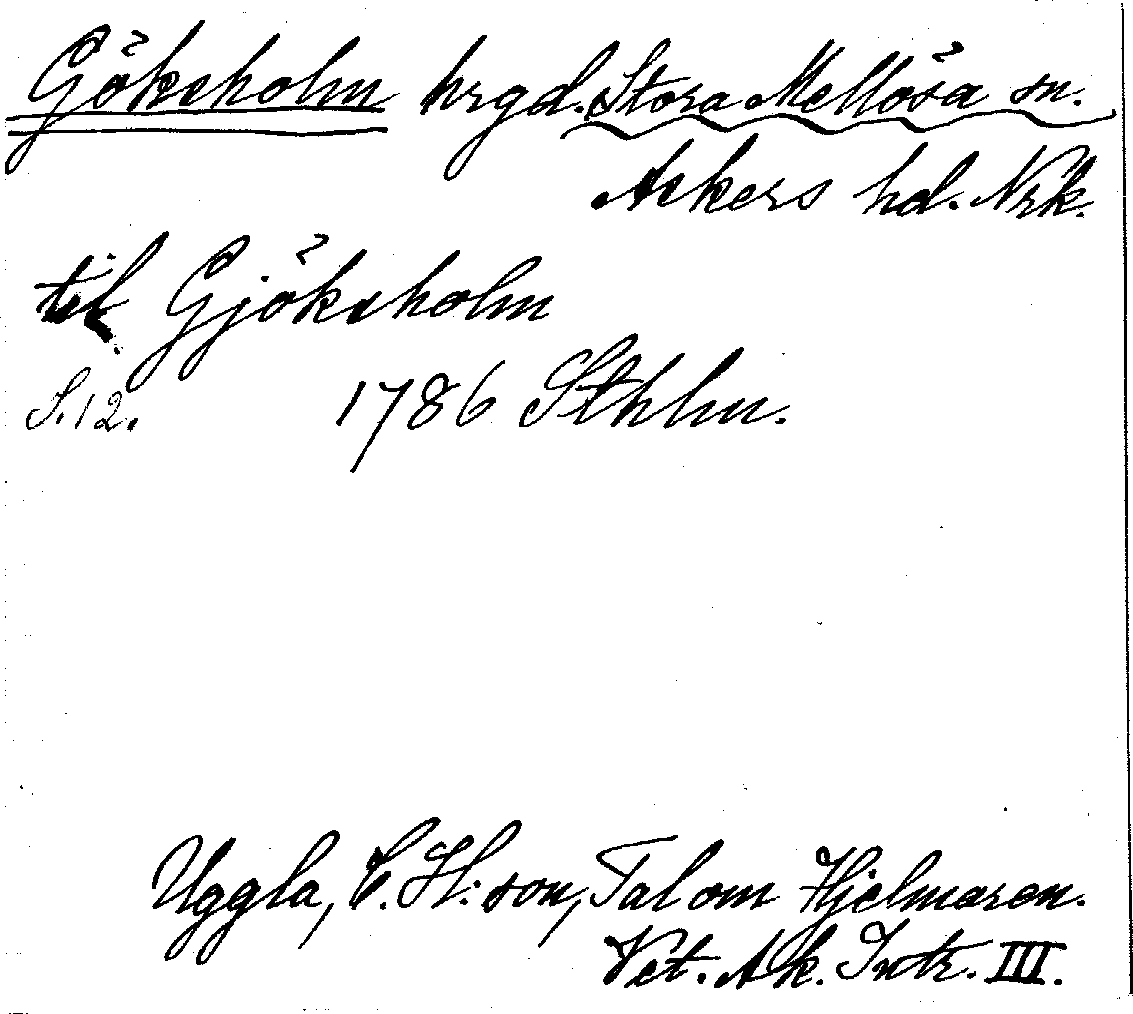 Göksholm hrgd. Stora Mellösa sn.
Askers hd. Nrk.
til Gjöksholm
S. 12. 1786 Sthlm.
Uggla, C. H:son, Tal om Hjelmaren.
Vet. Ak. Intr. III.